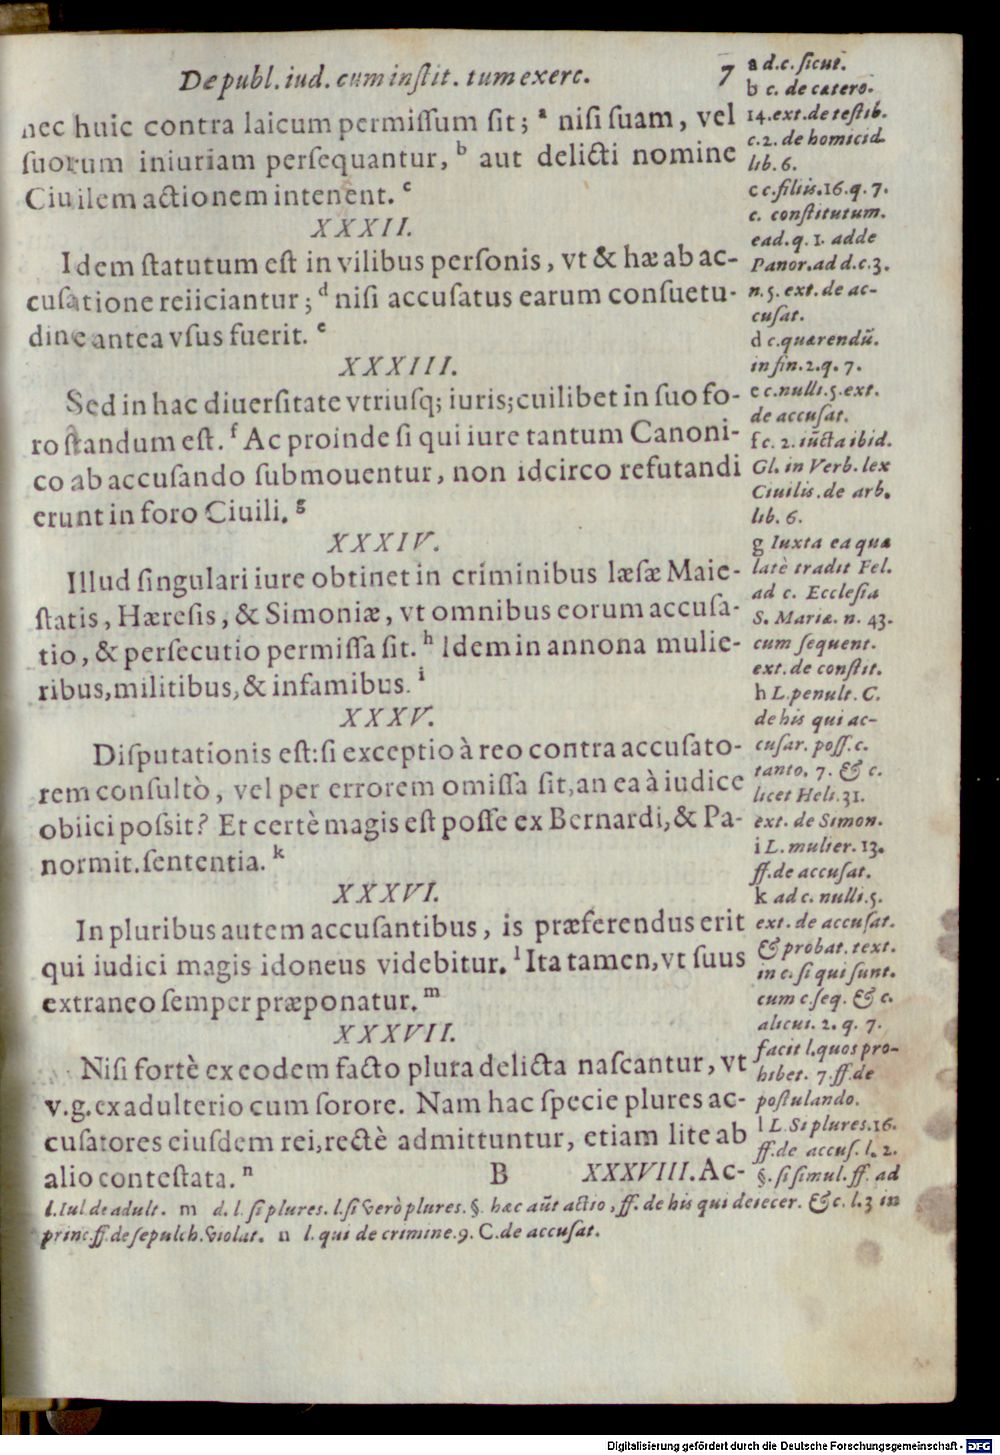 De publ. iud. cum inſtit. tum exerc. 7
nec huic contra laicum permiſſum ſit; a niſi ſuam, vel
ſuorum iniuriam perſequantur, b aut delicti nomine
Ciuilem actionem intenent. c
XXXII.
Idem ſtatutum eſt in vilibus perſonis, vt & hæ ab ac-
cuſatione reiiciantur; d niſi accuſatus earum conſuetu-
dine antea vſus fuerit. e
XXXIII.
Sed in hac diuerſitate vtriuſq; iuris; cuilibet in ſuo fo-
ro ſtandum eſt. f Ac proinde ſi qui iure tantum Canoni-
co ab accuſando ſubmouentur, non idcirco refutandi
erunt in foro Ciuili. g
XXXIV.
Illud ſingulari iure obtinet in criminibus læſæ Maie-
ſtatis, Hæreſis, & Simoniæ, vt omnibus eorum accuſa-
tio, & perſecutio permiſſa ſit. h Idem in annona mulie-
ribus, militibus, & infamibus. i
XXXV.
Diſputationis eſt: ſi exceptio à reo contra accuſato-
rem conſultò, vel per errorem omiſſa ſit, an ea à iudice
obiici poſsit? Et certè magis eſt poſſe ex Bernardi, & Pa-
normit. ſententia. k
XXXVI.
In pluribus autem accuſantibus, is præferendus erit
qui iudici magis idoneus videbitur. l Ita tamen, vt ſuus
extraneo ſemper præponatur. m
XXXVII.
Niſi fortè ex eodem facto plura delicta naſcantur, vt
v. g. ex adulterio cum ſorore. Nam hac ſpecie plures ac-
cuſatores eiuſdem rei, rectè admittuntur, etiam lite ab
alio conteſtata. n
B XXXVIII. Ac-
a d. c. ſicut.
b c. de cætero.
14. ext. de teſtib.
c. 2. de homicid.
lib. 6.
c c. filiis. 16. q. 7.
c. conſtitutum.
ead. q. 1. adde
Panor. ad d. c. 3.
n. 5. ext. de ac-
cuſat.
d c. quærendũ.
in fin. 2. q. 7.
e c. nulli. 5. ext.
de accuſat.
f c. 2. iũcta ibid.
Gl. in Verb. lex
Ciuilis. de arb.
lib. 6.
g Iuxta ea quæ
latè tradit Fel.
ad c. Eccleſia
S. Mariæ. n. 43.
cum ſequent.
ext. de conſtit.
h L. penult. C.
de his qui ac-
cuſar. poſſ. c.
tanto. 7. & c.
licet Heli. 31.
ext. de Simon.
i L. mulier. 13.
ff. de accuſat.
k ad c. nulli. 5.
ext. de accuſat.
& probat. text.
in c. ſi qui ſunt.
cum c. ſeq. & c.
alicui. 2. q. 7.
facit l. quos pro-
hibet. 7. ff. de
poſtulando.
l L. Si plures. 16.
ff. de accuſ. l. 2.
§. ſi ſimul. ff. ad
l. Iul. de adult. m d. l. ſi plures. l. ſi verò plures. §. hæc aũt actio, ff. de his qui deiecer. & c. l. 3 in
princ. ff. de ſepulch. violat. n l. qui de crimine. 9. C. de accuſat.
Digitalisierung gefördert durch die Deutsche Forschungsgemeinschaft - DFG